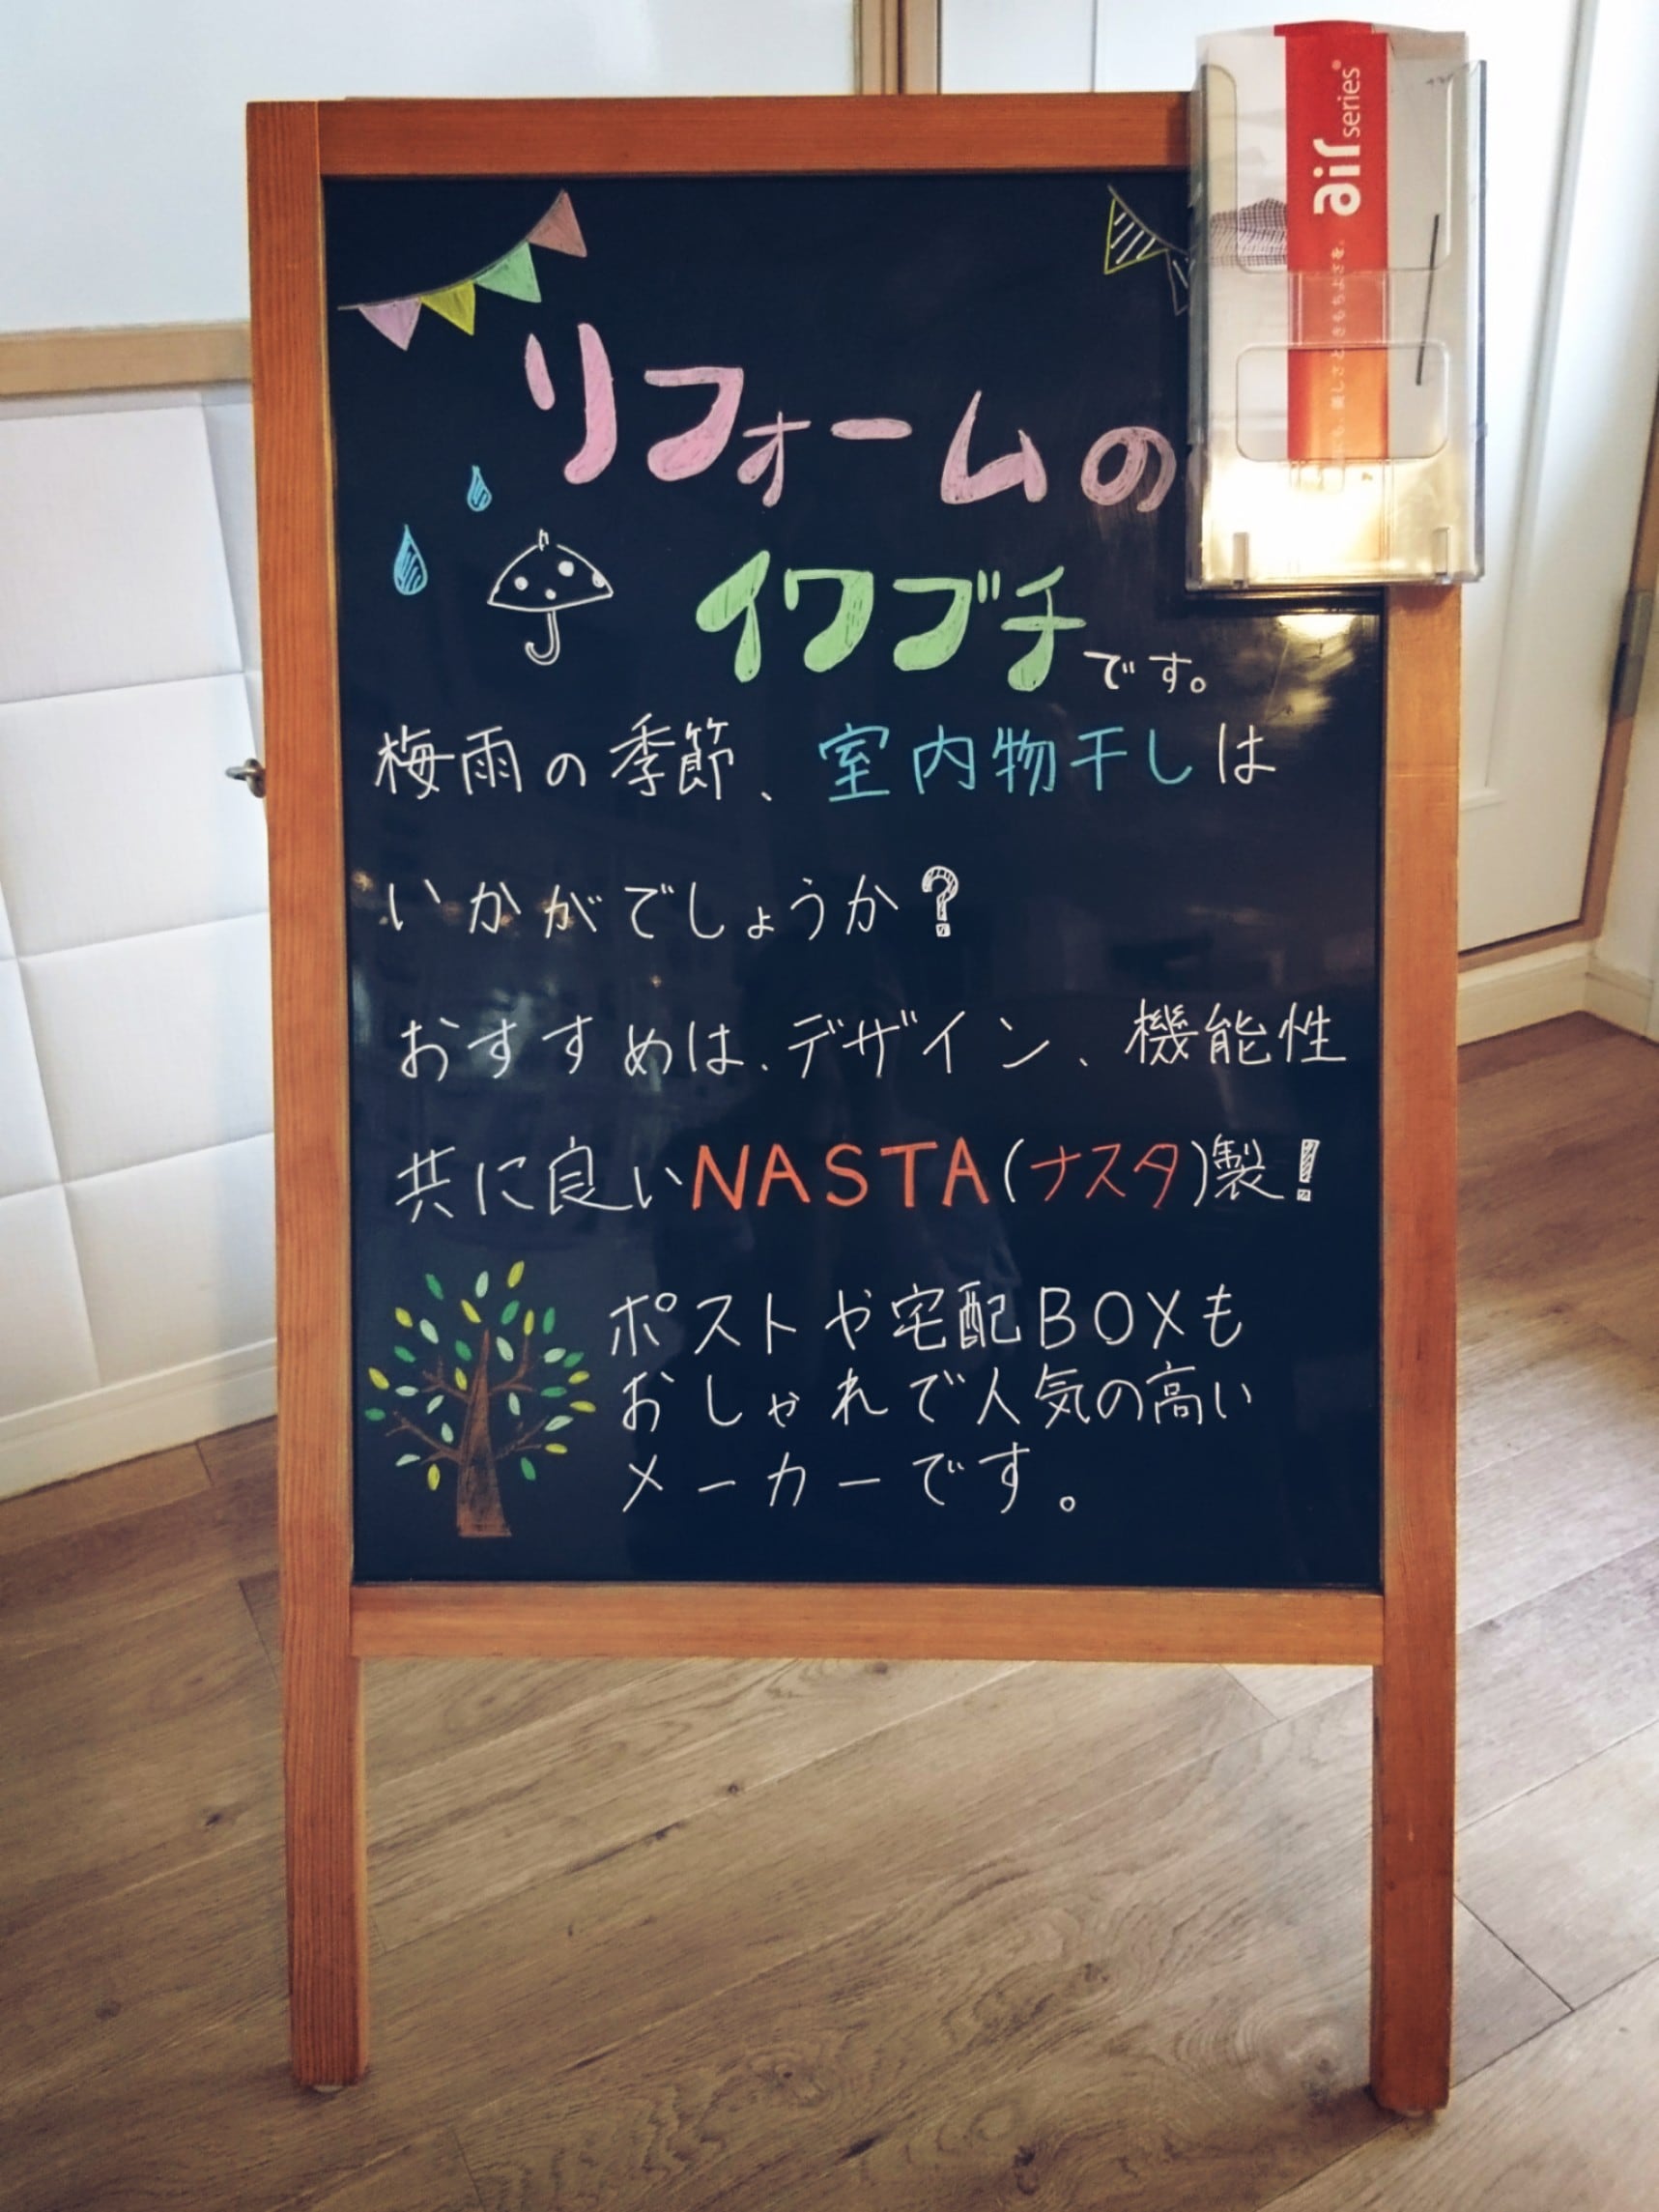 air series®
リフォームの
イワブチです。
梅雨の季節、室内物干しは
いかがでしょうか?
おすすめは、デザイン、機能性
共に良いNASTA(ナスタ)製!
ポストや宅配BOXも
おしゃれで人気の高い
メーカーです。